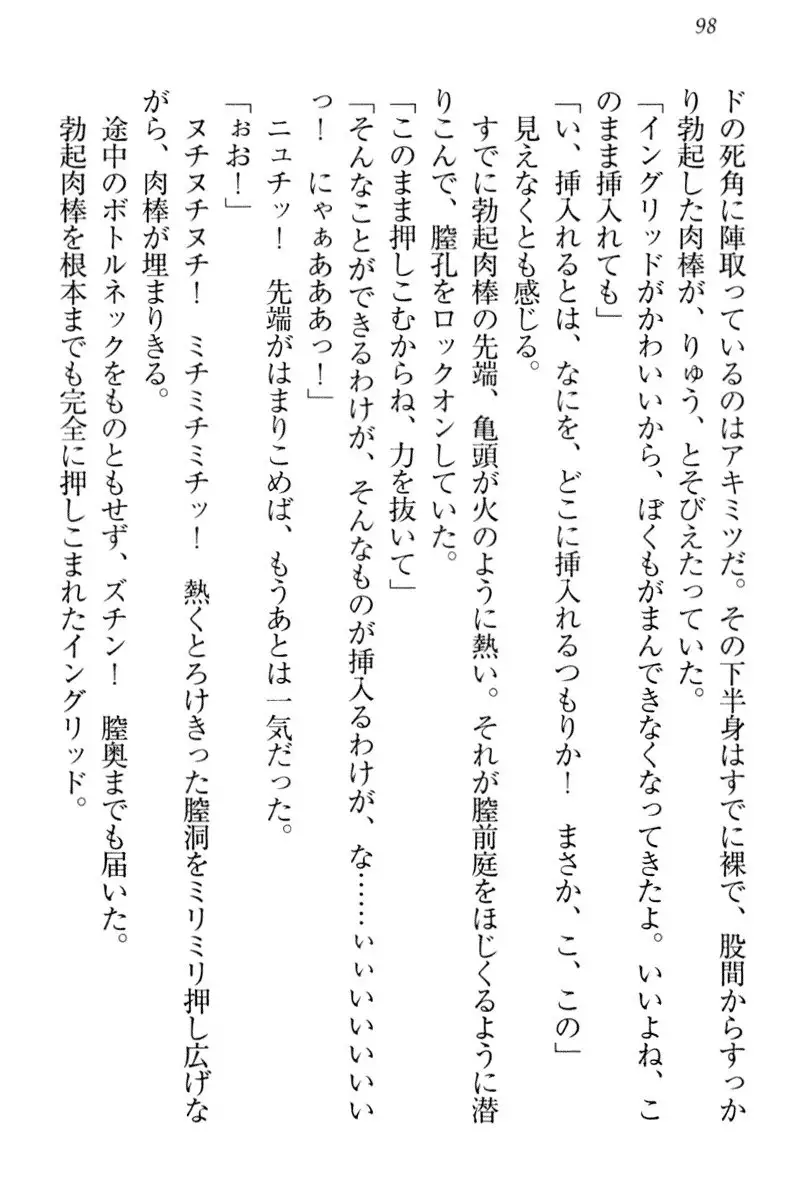 98
ドの死角に陣取っているのはアキミツだ。その下半身はすでに裸で、股間からすっか
り勃起した肉棒が、りゅう、とそびえたっていた。
「イングリッドがかわいいから、ぼくもがまんできなくなってきたよ。いいよね、こ
のまま挿入れても」
「い、挿入れるとは、なにを、どこに挿入れるつもりか！　まさか、こ、この」
見えなくとも感じる。
すでに勃起肉棒の先端、亀頭が火のように熱い。それが膣前庭をほじくるように潜
りこんで、膣孔をロックオンしていた。
「このまま押しこむからね、力を抜いて」
「そんなことができるわけが、そんなものが挿入るわけが、な……ぃぃいいいいい
っ！　にゃぁあああっ！」
ニュチッ！　先端がはまりこめば、もうあとは一気だった。
「ぉお！」
ヌチヌチヌチ！　ミチミチミチッ！　熱くとろけきった膣洞をミリミリ押し広げな
がら、肉棒が埋まりきる。
途中のボトルネックをものともせず、ズチン！　膣奥までも届いた。
勃起肉棒を根本までも完全に押しこまれたイングリッド。